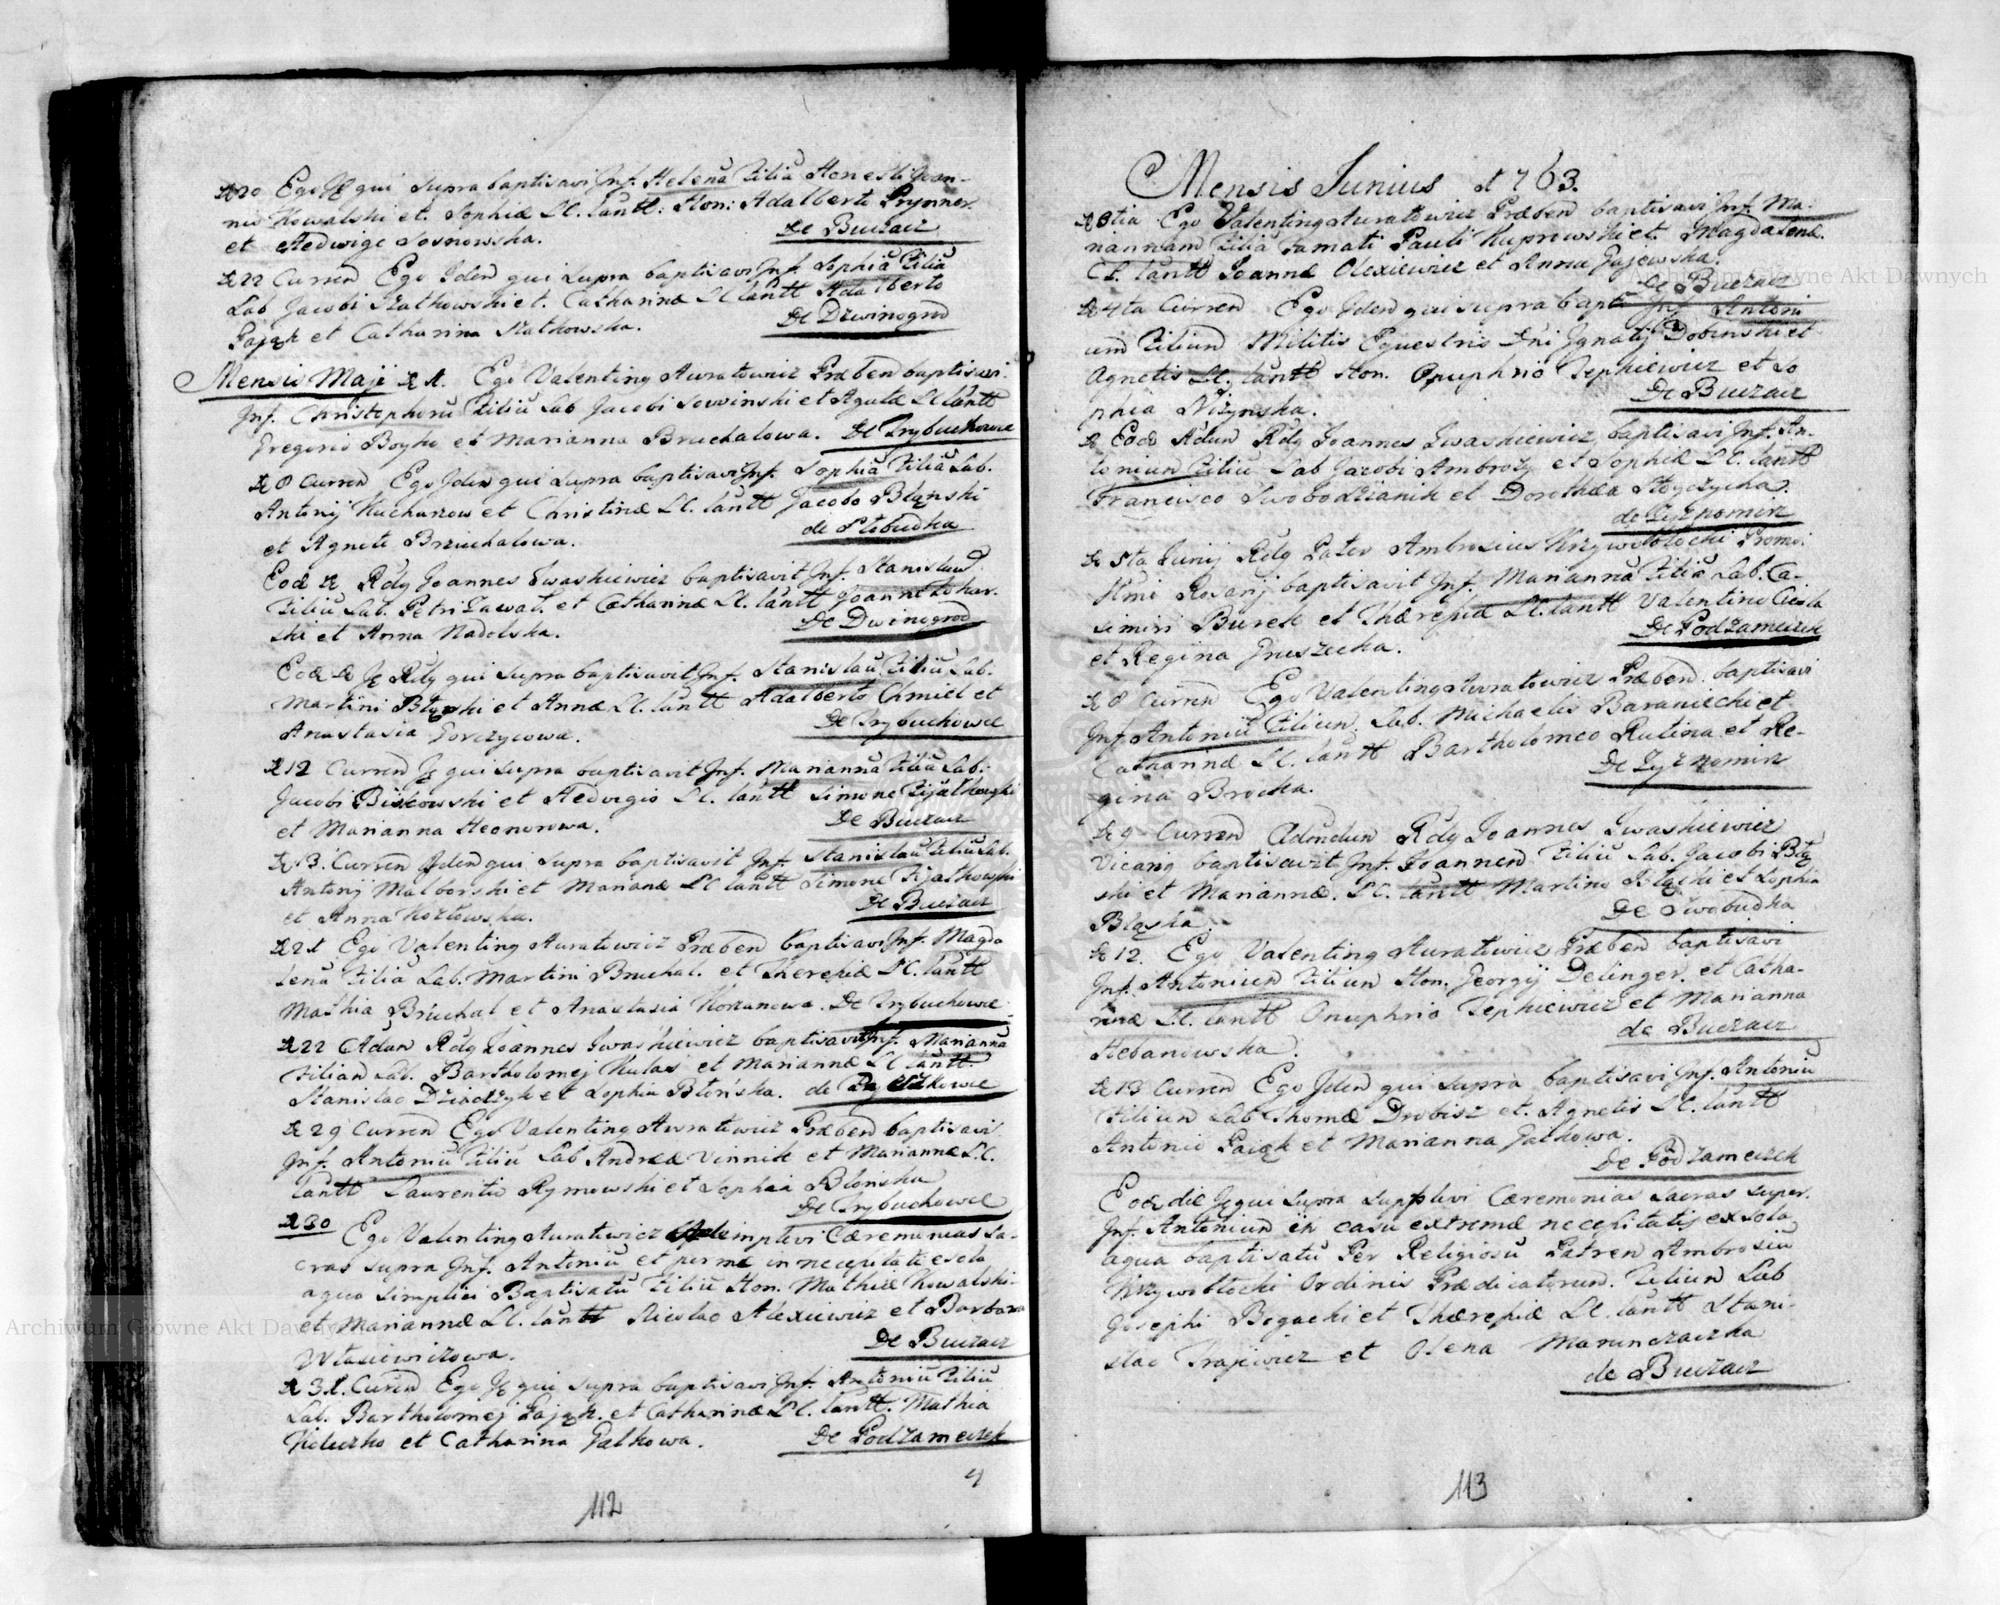 D 20 Ego Id qui supra baptisavi Inf. Helenã Filiã Honesti Joan-
nis Kowalski et Sophiæ LC. Lantt: Hon: Adalberto Prymner
et Hedwige Sosnowska.
de Buczacz
D 22 Curren Ego Iden qui supra baptisavi Inf. Sophiã Filiã
Lab Jacobi Szatkowski et Catharinæ LC Lantt Adalberto
Pająk et Catharina Szatkowska.
De Dzwinogrod
Mensis Maji D 1. Ego Valentinq Auratowicz Præben baptisavi
Inf. Christophorũ Filiũ Lab Jacobi Sowinski et Agatæ LC Lantt
Gregorio Boyko et Marianna Bruchalowa. De Trybuchowce
D 8 Curren Ego Iden qui supra baptisavi Inf. Sophiã Filiã Lab.
Antonij Kucharzow et Christinæ LC. Lantt Jacobo Bląnski
et Agneti Brzuchalowa.
de Słobudka
Eod D Rdq Joannes Iwaskiewicz baptisavit Inf. Stanislaũ
Filiũ Lab. Petri Zawał. et Catharinæ LC. Lantt Joanne
ski et Anna Nadolska.
De Dwinogrod
Eod D Id Rdq qui supra baptisavit Inf. Stanislaũ Filiũ Lab.
Martini Błąski et Annæ LC. Lantt Adalberto Chmiel et
Anastasia Gorczycowa.
De Trybuchowce
D 12 Curren Id qui supra baptisavit Inf. Mariannã Filiã Lab.
Jacobi Biskowski et Hedvigis LC. Lantt Simone Fijałkowski
et Marianna Heonorowa.
De Buczacz
D 13. Curren Iden qui supra baptisavit Inf. Stanislaũ Filiũ Lab.
Antonij Malborski et Marianæ LC Lantt Simone Fijałkowski
et Anna Kozłowska.
De Buczacz
D 21 Ego Valentinq Auratowicz Præben baptisavi Inf. Magda
lenã Filiã Lab. Martini Bruchal. et Theresiæ LC. Lantt
Mathia Bruchal et Anastasia Korzanowa. De Trybuchowce.
D 22 Adun Rdq Joannes Iwaskiewicz baptisavit Inf. Mariannã
Filiam Lab. Bartholomej Kulas et Mariannæ LC Lantt
Stanislao Dziadzyk et Sophia Błońska.
D 29 Curren Ego Valentinq Auratowicz Præben baptisavi
Inf. Antoniũ Filiũ Lab Andreæ Vinnik et Mariannæ LC.
Lantt Laurentio Rymowski et Sophia Błońska
De Trybuchowce
D 30
Ego Valentinq Auratowicz Adimplevi Cæremonias Sa-
cras supra Inf. Antoniũ et per me in necessitate sola
aqua simplici Baptisatũ Filiũ Hon. Mathiæ Kowalski
et Mariannæ LC. Lantt Nicolao Alexiewicz et Barbara
Własiewiczowa.
De Buczacz
D 31. Curen Ego Id qui supra baptisavi Inf. Antoniũ Filiũ
Lab. Bartholomej Pająk. et Catharinæ LC. Lantt. Mathia
et Catharina Galkowa.
De Podzameczek
112
Mensis Junius 1763.
D 3tia Ego Valentinq Auratowicz Præben baptisavi Inf. Ma-
riannam Filiã Famati Pauli Kuprowski et Magdalenæ
LC. Lantt Joanne Olexiewicz et Anna Gajewska.
de Buczacz
D 4ta Curren Ego Iden qui supra bapti Inf Antoni
um Filium Militis Equestris Dni Ignatij Dobinski et
Agnetis LC. Lantt Hon. Onuphrio Tephiewicz et So
phia Niżynska.
De Buczacz
D Eod Adun Rdq Joannes Iwaskiewicz baptisavi Inf. An-
tonium Filiũ Lab Jacobi Ambroży et Sophiæ LC. Lantt
Francisco Swobodzianik et Dorothæa Stoyczycka.
de Żyznomirz
D 5ta Junij Rdq Pater Ambrosius Krzywobłocki Promo-
SSmi Rosarij baptisavit Inf. Mariannã Filiã Lab. Ca-
simiri Burek et Thæresiæ LC. Lantt Valentino Ciesla
et Regina Gruszecka.
De Podzameczek
D 8 Curren Ego Valentinq Auratowicz Præben. baptisavi
Inf Antoniũ Filium Lab. Michaelis Baraniecki et
Catharinæ LC. Lantt Bartholomeo Rutina et Re-
gina Brocka.
De Żyznomirz
D 9 Curren Admdun Rdq Joannes Iwaskiewicz
Vicariq baptisavit Inf. Joannem Filiũ Lab. Jacobi Błą
ski et Mariannæ. LC. Lantt Martino Błąski et Sophia
Bląska.
De Swobudka
D 12. Ego Valentinq Auratowicz Præben baptisavi
Inf. Antonium Filium Hon. Georgij Delinger. et Catha-
rinæ LC. Lantt Onuphrio Tephiewicz et Marianna
Hebanowska.
de Buczacz
D 13 Curren Ego Iden qui supra baptisavi Inf. Antoniũ
Filiũn Lab Thomæ Drobisz et. Agnetis LC. Lantt
Antonio Paiąk et Marianna Galkowa.
De Podzameczek
Eod die Id qui supra supplevi Cæremonias sacras super
Inf. Antonium in casu extremæ necessitatis ex sola
aqua baptisatũ Per Religiosũ Patren Ambrosiũ
Krzywobłocki Ordinis Prædicatorum. Filium Lab
Josephi Bogacki et Thæresiæ LC. Lantt Stani-
slao et Olena Marunczaczka
de Buczacz
113
Archiwum Główne Akt Dawnych
Archiwum Główne Akt Dawnych